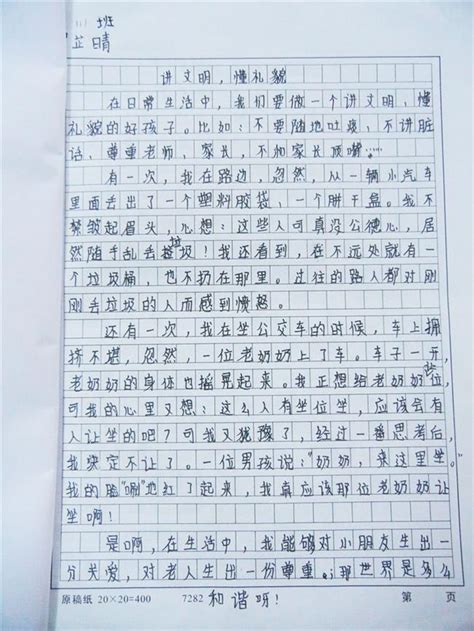 班
芷晴
讲文明，懂礼貌
在日常生活中，我们要做一个讲文明、懂
礼貌的好孩子。比如：不要随地吐痰、不讲脏
话、尊重老师、家长，不和家长顶嘴……
有一次，我在路边，忽然，从一辆小汽车
里面丢出了一个塑料胶袋、一个饼干盒。我不
禁皱起眉头，心想：这些人可真没公德心，居
然随手乱丢垃圾！我还看到，在不远处就有一
个垃圾桶，也不扔在那里。过往的路人都对刚
刚丢垃圾的人而感到愤怒。
还有一次，我在坐公交车的时候，车上拥
挤不堪，忽然，一位老奶奶上了车。车子一开，
老奶奶的身体也摇晃起来。我正想给老奶奶让位，
可我的心里又想：这么人有坐位坐，应该会有
人让坐的吧？可我又犹豫了，经过一番思考后，
我决定不让了。一位男孩说：“奶奶，来这里坐。”
我的脸“唰”地红了起来，我真应该那位老奶奶让
坐啊！
是啊，在生活中，我能够对小朋友生出一
分关爱，对老人生出一份尊重。那世界是多么
和谐呀！
原稿纸 20×20=400 7282 第 页